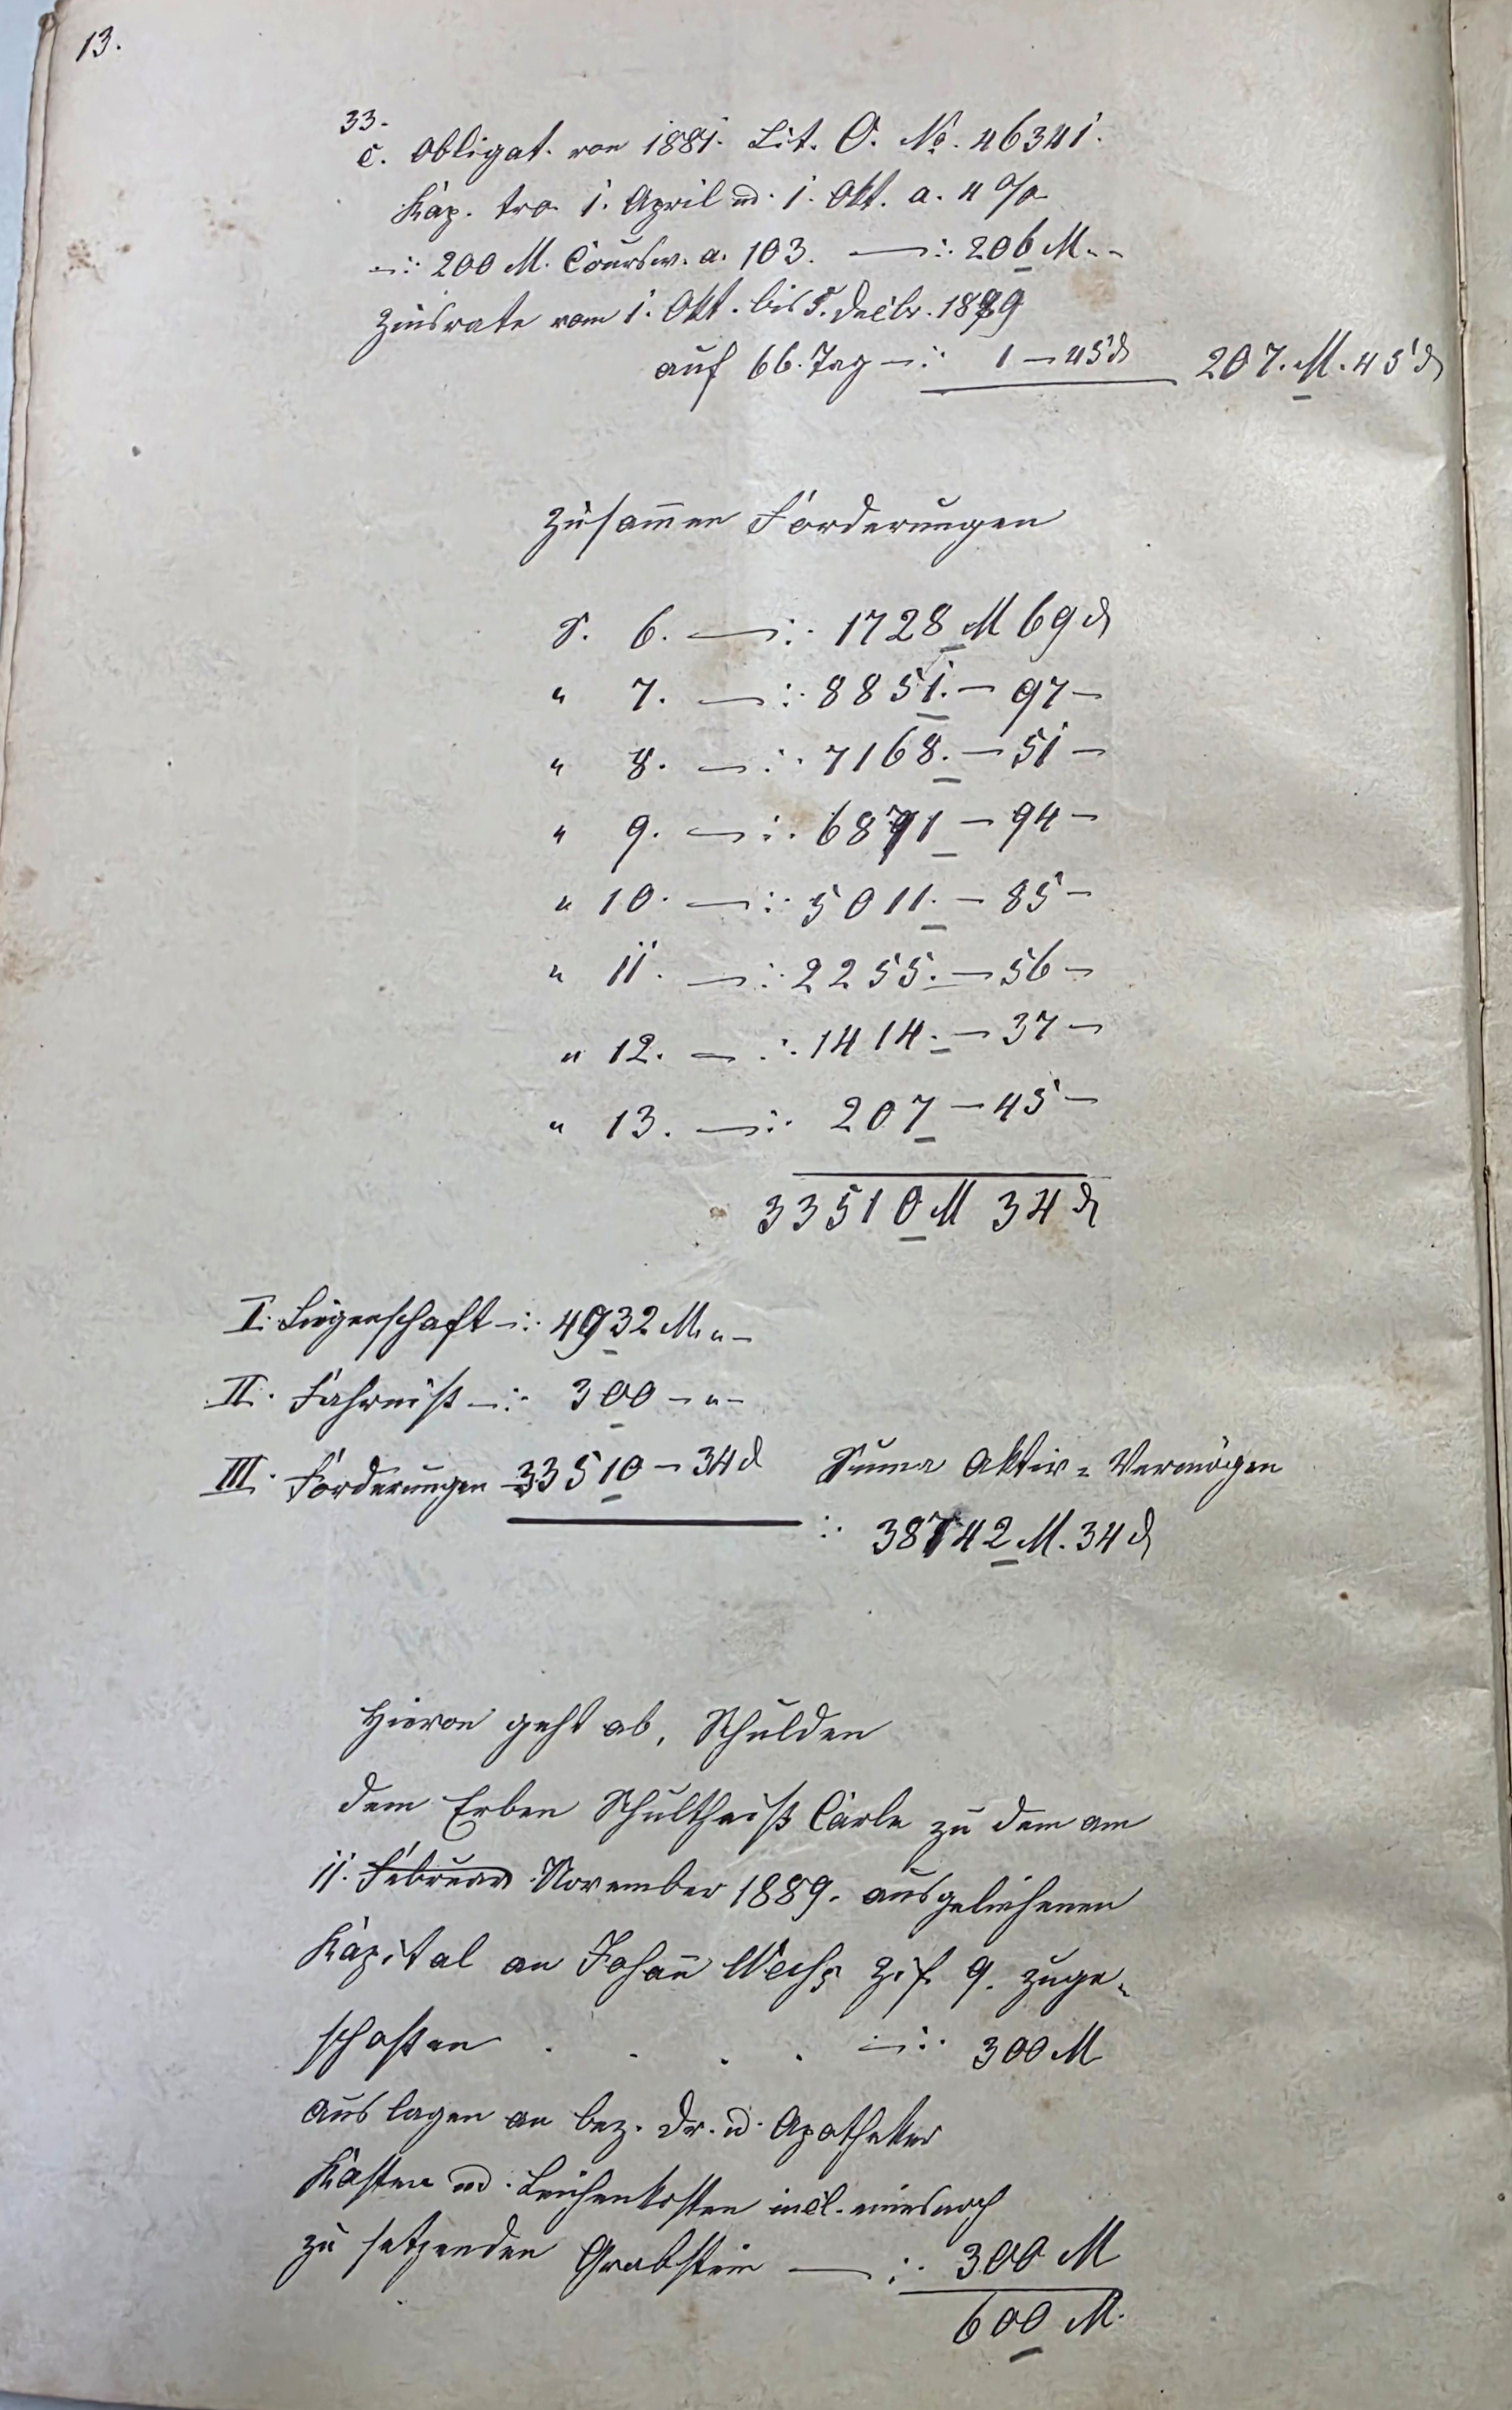 13.
33.
c. Obligat. von 1881. Lit. O. No. 46341.
Kap. tra 1. April und 1. Okt. a. 4 %
–:· 200 M. Coursw. a. 103. –:· 206 M. –
Zinsrate vom 1. Okt. bis 5. Decbr. 1889
auf 66. Tag –: 1 – 45 ₰ 207. M. 45 ₰
Zusam̅en Forderungen
S. 6. –:· 1728 M 69 ₰
" 7. –:· 8851. – 97 –
" 8. –:· 7168. – 51 –
" 9. –:· 6871 – 94 –
" 10. –:· 5011. – 85 –
" 11. –:· 2255. – 56 –
" 12. –:· 1414. – 37 –
" 13. –:· 207 – 45 –
33510 M 34 ₰
I. Liegenschaft –:· 4932 M. " –
II. Fahrniß –:· 300 – " –
III. Forderungen 33510 – 34 ₰ Suma Aktiv-Vermögen
:· 38742 M. 34 ₰
Hievon geht ab, Schulden
dem Erben Schultheiß Carle zu dem am
11. Februar November 1889. ausgeliehenen
Kapital an Johan̅ Zif. 9. zuge-
schossen . . . . –:· 300 M
Auslagen an bez. Dr. u. Apotheker
Kosten und Leichenkosten incl. eines noch
zu setzenden Grabstein –:· 300 M
600 M.